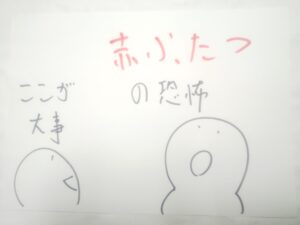 赤ぶたつ
の恐怖
ここが
大事